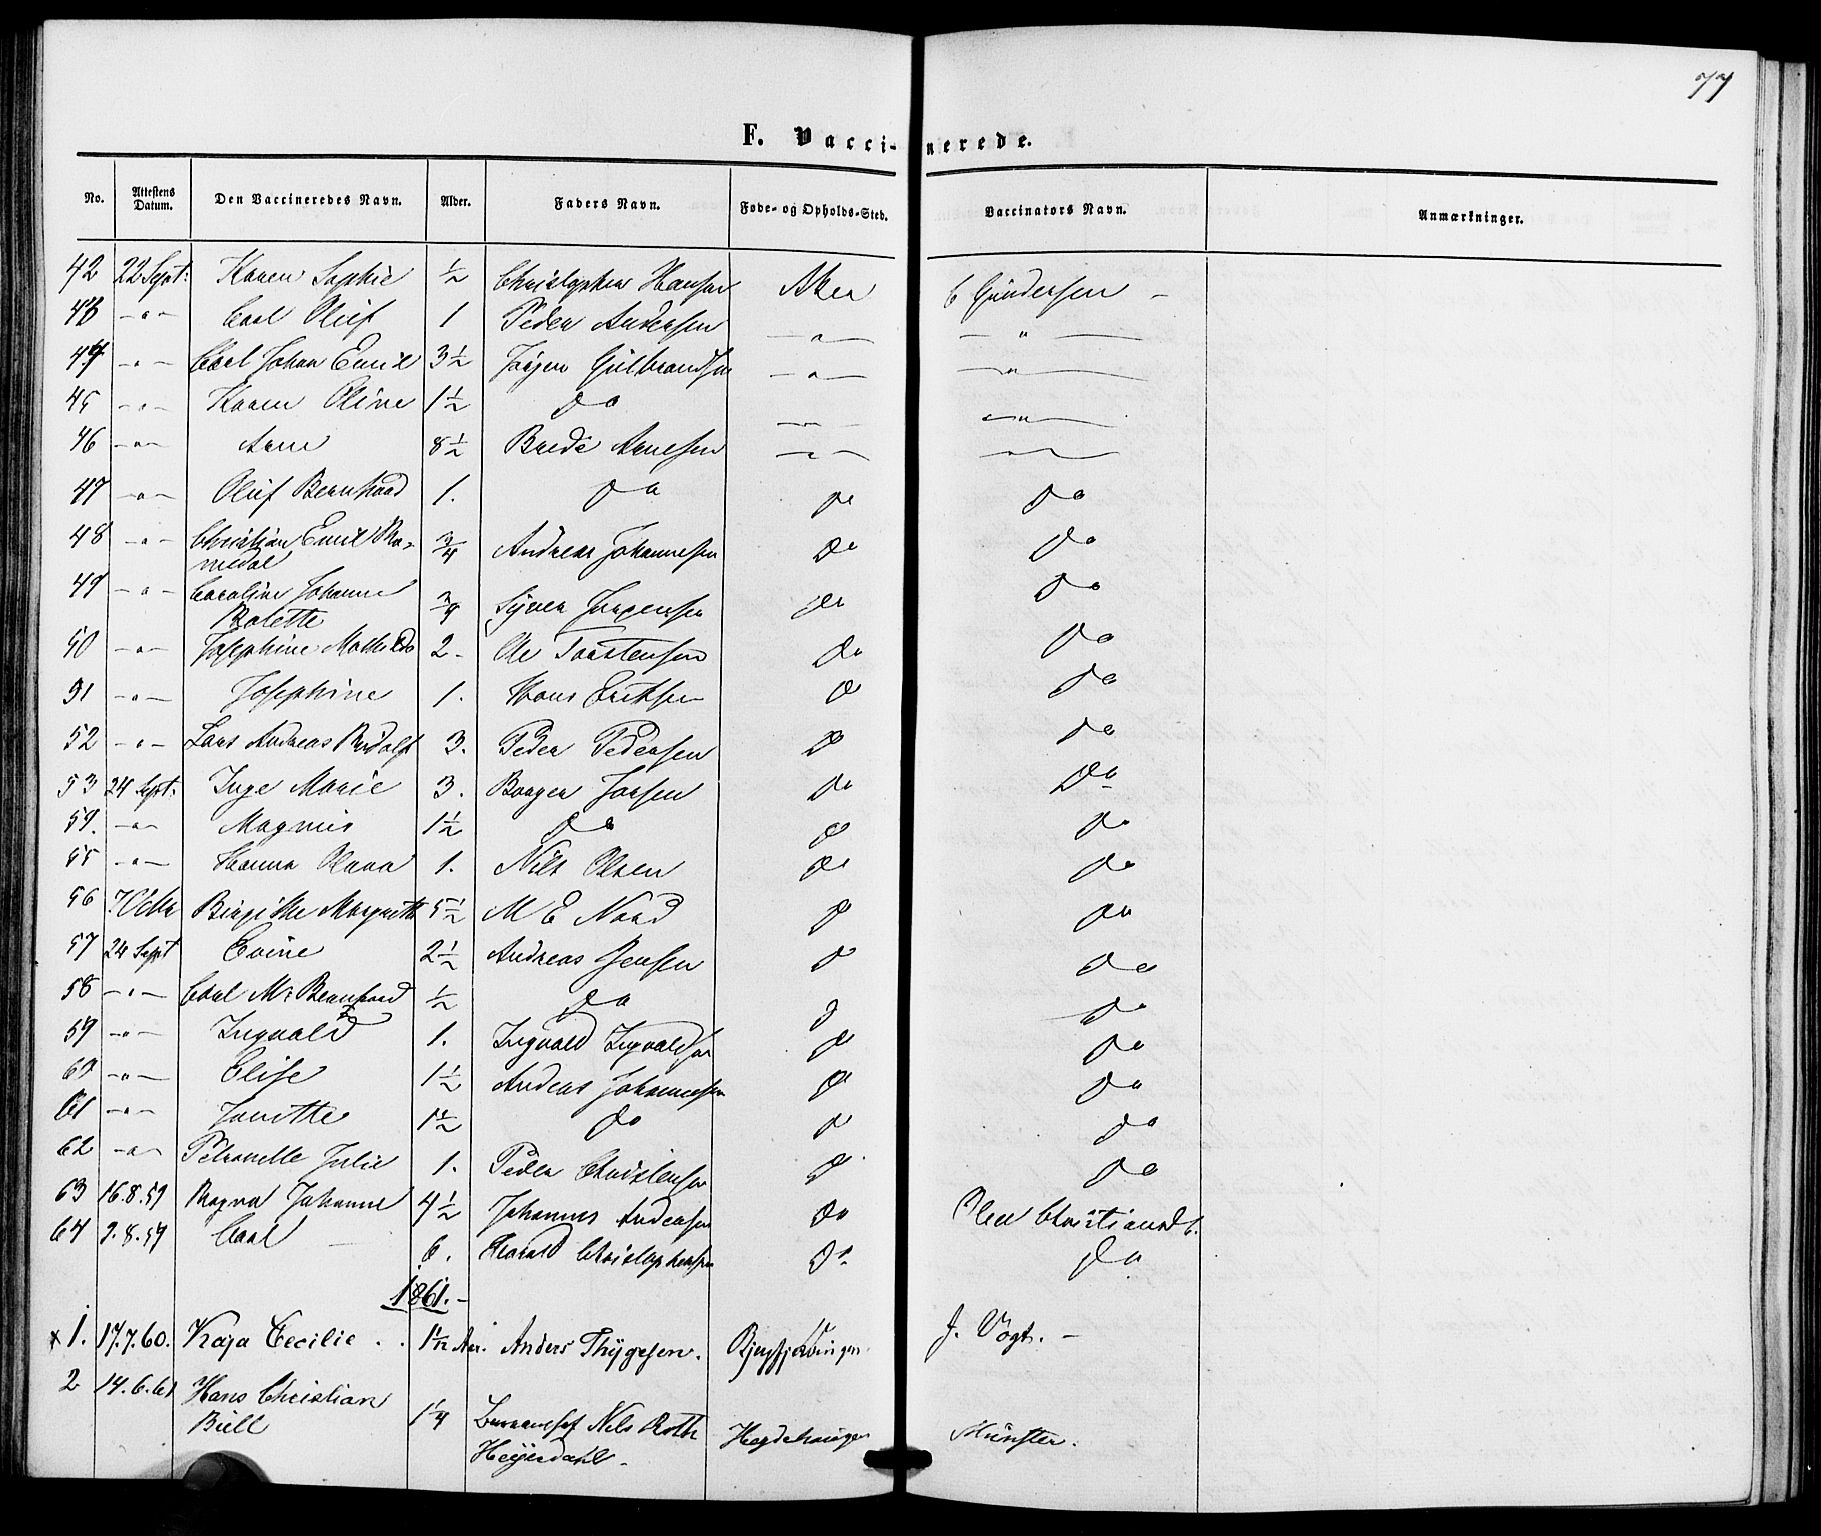 77
F. Vaccinerede.
No. Attestens Datum. Den Vaccineredes Navn. Alder. Faders Navn. Føde- og Opholds-Sted. Vaccinators Navn. Anmærkninger.
42 22 Sept: Karen Sophie ½ Christopher Hansen Aker C Gundersen -
43 -"- Carl Oluf 1 Peder Andersen -"- -"-
44 -"- Carl Johan Emil 3½ Jørgen Gulbrandsen -"- -"-
45 -"- Karen Oline 1½ Do -"- -"-
46 -"- Arne 8½ Brede Arnesen -"- -"-
47 -"- Oluf Bernhard 1. Do Do Do
48 -"- Christian Emil Ro-
medal ¾ Andreas Johannesen Do Do
49 -"- Caroline Johanne
Bolette ¾ Syver Jørgensen Do Do
50 -"- Josephine Mathilde 2- Ole Torstensen Do Do
51 -"- Josephine 1. Hans Eriksen D Do
52 -"- Lars Andreas Rudolf 3. Peder Pedersen D Do
53 24 Sept: Inge Marie 3. Borger Do Do
54. -"- Magnus 1½ Do D Do
55 -"- Hanna Olava 1. Nils Olsen Do Do
56 7 Octbr Birgitthe Margreth 5½ M E Nord D Do
57 24 Sept Evine 2½ Andreas Jensen D Do
58 -"- Carl M: Bernhard ½ Do D Do
59 -"- Ingvald 1. Ingvald Ingvaldsen D Do
60 -"- Elise 1½ Andreas Johannesen D Do
61 -"- Janette 1½ Do D Do
62 -"- Petronelle Julie 1. Peder Christensen D Do
63 16.8.59 Ragna Johanne 4½ Johannes Andersen Do Olea Christiansd b.
64 9.8.59 Carl - 6. Harald Christophersen Do Do
1861.-
x 1. 17.7.60. Kaja Cecilie . . Anders Thygesen. J. Vogt. -
2 14.6.61 Hans Christian
Bull 1¼ Nils Roth
Heyerdahl - Hegdehaugen Münster.